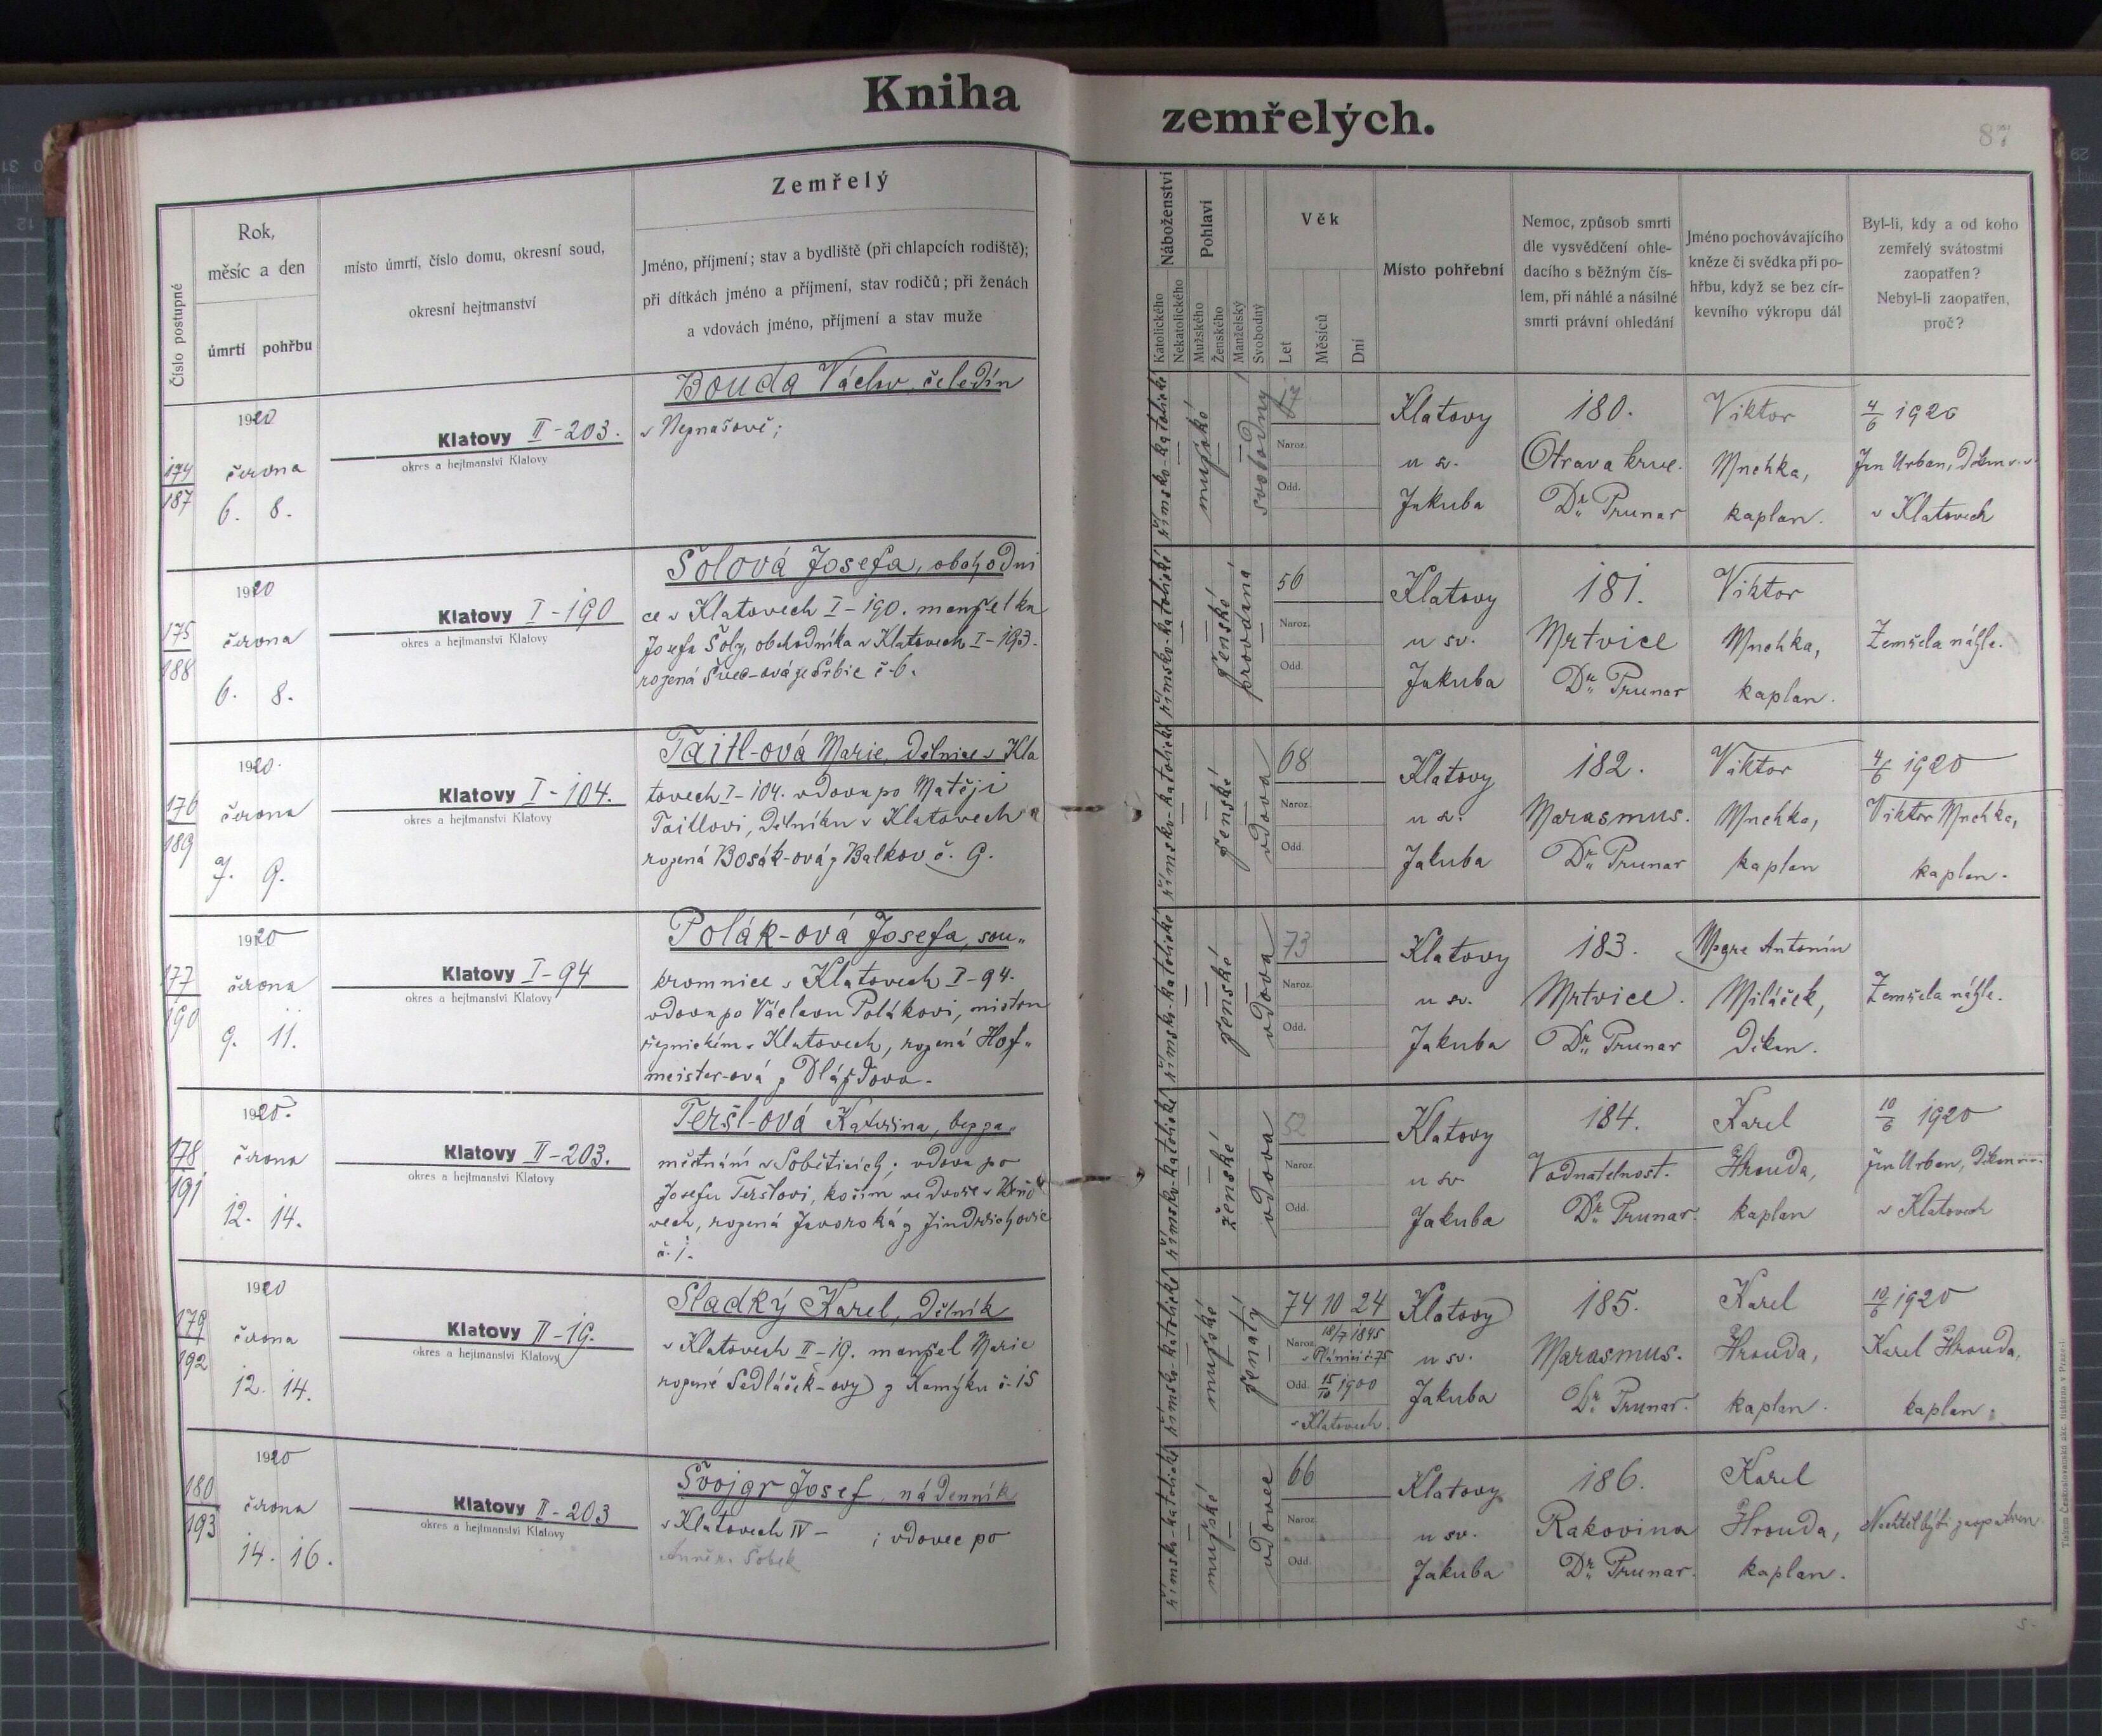 Kniha zemřelých.
87
Číslo postupné
Rok,
měsíc a den
úmrtí pohřbu
místo úmrtí, číslo domu, okresní soud,
okresní hejtmanství
Zemřelý
Jméno, příjmení; stav a bydliště (při chlapcích rodiště);
při dítkách jméno a příjmení, stav rodičů; při ženách
a vdovách jméno, příjmení a stav muže
Náboženství
Katolického
Nekatolického
Pohlaví
Mužského
Ženského
Manželský
Svobodný
Věk
Let
Měsíců
Dní
Místo pohřební
Nemoc, způsob smrti
dle vysvědčení ohle-
dacího s běžným čís-
lem, při náhlé a násilné
smrti právní ohledání
Jméno pochovávajícího
kněze či svědka při po-
hřbu, když se bez cír-
kevního výkropu dál
Byl-li, kdy a od koho
zemřelý svátostmi
zaopatřen?
Nebyl-li zaopatřen,
proč?
174
187
1920
června
6. 8.
Klatovy II-203.
okres a hejtmanství Klatovy
Bouda Václav, čeledín
římsko-katolické
mužské
svobodný
Naroz.
Odd.
Klatovy
u sv.
Jakuba
180.
Otrava krve.
Dr. Prunar
Viktor
Mnehka,
kaplan.
4/6 1920
Jan Urban, děkan
v Klatovech
175
188
1920
června
6. 8.
Klatovy I-190
okres a hejtmanství Klatovy
Šolová Josefa, obchodni
ce v Klatovech I-190. manželka
Josefa Šoly, obchodníka v Klatovech I-193.
rozená Švec-ová ze Srbic č. 6.
římsko-katolické
ženské
provdaná
56
Naroz.
Odd.
Klatovy
u sv.
Jakuba
181.
Mrtvice
Dr. Prunar
Viktor
Mnehka,
kaplan.
Zemřela náhle.
176
189
1920.
června
7. 9.
Klatovy I-104.
okres a hejtmanství Klatovy
Taitl-ová Marie, dělnice v Kla
tovech I-104. vdova po Matěji
Taitlovi, dělníku v Klatovech
rozená Bosák-ová z Balkov č. 9.
římsko-katolické
ženské
vdova
68
Naroz.
Odd.
Klatovy
u sv.
Jakuba
182.
Marasmus.
Dr. Prunar
Viktor
Mnehka,
kaplan
4/6 1920
Viktor Mnehka,
kaplan.
177
190
1920
června
9. 11.
Klatovy I-94
okres a hejtmanství Klatovy
Polák-ová Josefa, sou-
kromnice v Klatovech I-94.
vdova po Václavu Polákovi, mistru
řeznickém v Klatovech, rozená Hof-
meister-ová z Dlážďova.
římsko-katolické
ženské
vdova
73
Naroz.
Odd.
Klatovy
u sv.
Jakuba
183.
Mrtvice.
Dr. Prunar
Msgre Antonín
Miláček,
děkan.
Zemřela náhle.
178
191
1920.
června
12. 14.
Klatovy II-203.
okres a hejtmanství Klatovy
Teršl-ová Kateřina, bez za-
městnání v Soběticích; vdova po
Josefu Teršlovi, kočím ve dvoře v
vech, rozená Javorská z Jindřichovic
č. 1.
římsko-katolické
ženské
vdova
52
Naroz.
Odd.
Klatovy
u sv.
Jakuba
184.
Vodnatelnost.
Dr. Prunar.
Karel
Hrouda,
kaplan
10/6 1920
Jan Urban, děkan
v Klatovech
179
192
1920
června
12. 14.
Klatovy II-19.
okres a hejtmanství Klatovy
Sladký Karel, dělník
v Klatovech II-19. manžel Marie
rozené Sedláček-ovy z Kamýku č. 15
římsko-katolické
mužské
ženatý
74 10 24
Naroz. 18/7 1845
v Plánici č. 75
Odd. 15/10 1900
v Klatovech.
Klatovy
u sv.
Jakuba
185.
Marasmus.
Dr. Prunar.
Karel
Hrouda,
kaplan.
10/6 1920
Karel Hrouda,
kaplan.
180
193
1920
června
14. 16.
Klatovy II-203
okres a hejtmanství Klatovy
Švojgr Josef, nádenník
v Klatovech IV- ; vdovec po
Šobek
římsko-katolické
mužské
vdovec
66
Naroz.
Odd.
Klatovy
u sv.
Jakuba
186.
Rakovina
Dr. Prunar.
Karel
Hrouda,
kaplan.
Nechtěl býti zaopatřen.